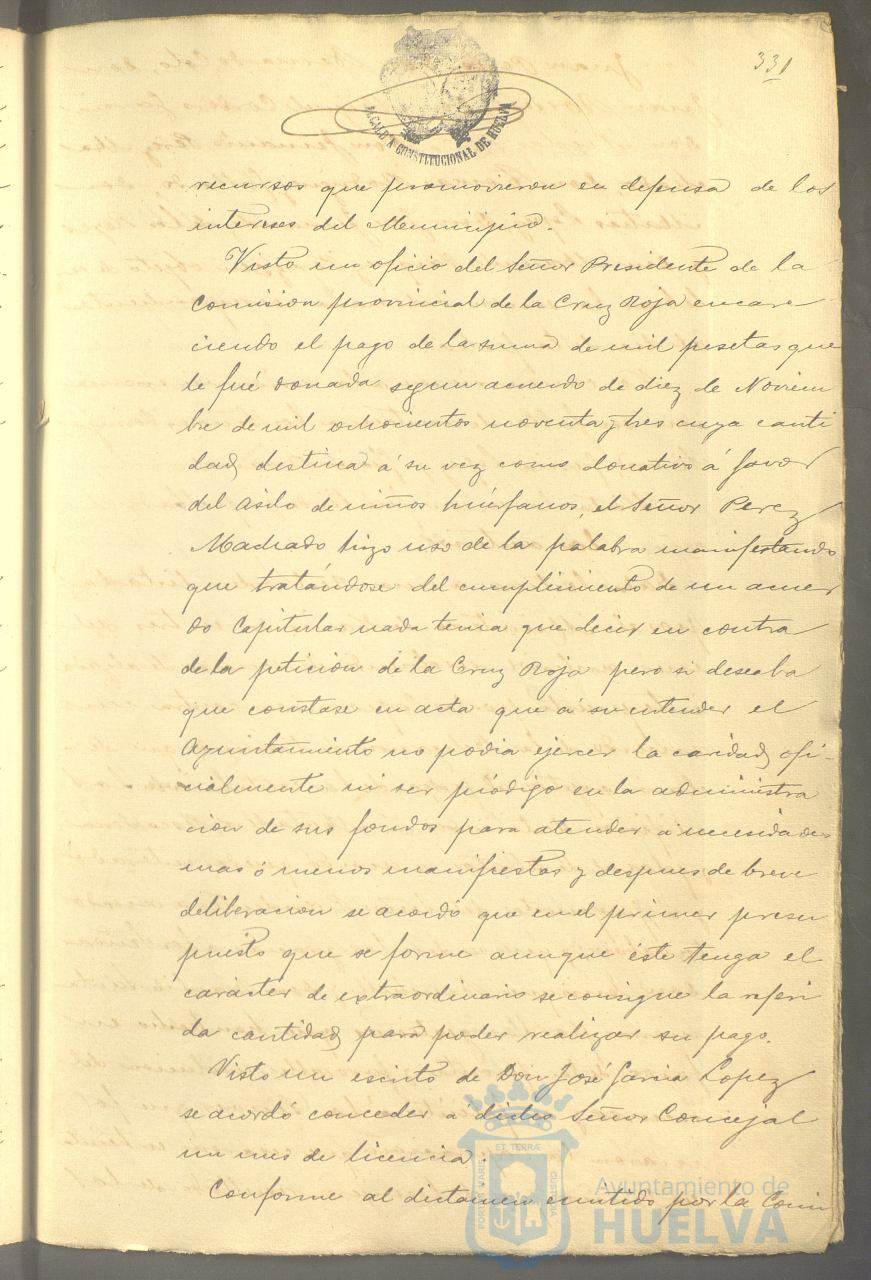 331
ALCALDIA CONSTITUCIONAL DE HUELVA
recursos que promovieron en defensa de los
intereses del Municipio.
Visto un oficio del Señor Presidente de la
Comision provincial de la Cruz Roja encare
ciendo el pago de la suma de mil pesetas que
le fué donada segun acuerdo de diez de Noviem
bre de mil ochocientos noventa y tres cuya canti
dad, destina á su vez como donativo á favor
del Asilo de niños huérfanos, el Señor Perez
Machado hizo uso de la palabra manifestando
que tratándose del cumplimiento de un acuer
do Capitular nada tenia que decir en contra
de la peticion de la Cruz Roja pero si deseaba
que constase en acta que á su entender el
Ayuntamiento no podia ejercer la caridad ofi-
cialmente ni ser pródigo en la administra
cion de sus fondos para atender á necesidades
mas ó menos manifiestas y despues de breve
deliberacion se acordó que en el primer presu
puesto que se forme aunque éste tenga el
carácter de extraordinario se consigne la referi
da cantidad para poder realizar su pago.
Visto un escrito de Don José Garcia Lopez
se acordó conceder a dicho Señor Concejal
un mes de licencia.
Conforme al dictamen emitido por la Comi
PORTUS MARIS ET TERRÆ CUSTODIA
Ayuntamiento de
HUELVA